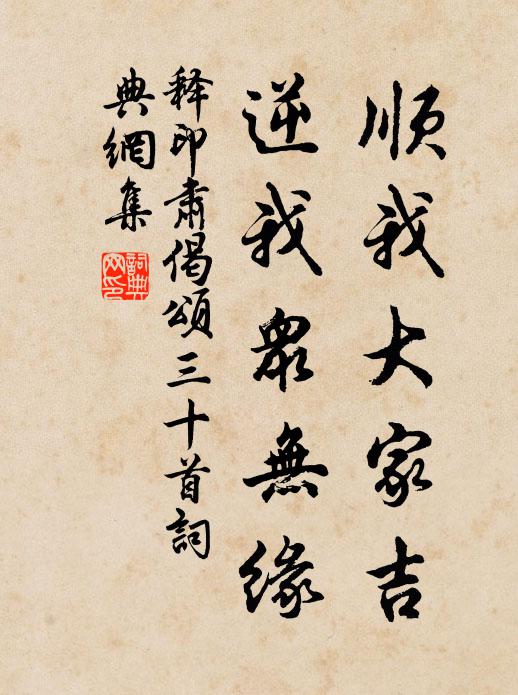 順我大家吉
逆我眾無緣
释印肅偈頌三十首詞
典網集
詞典
网印